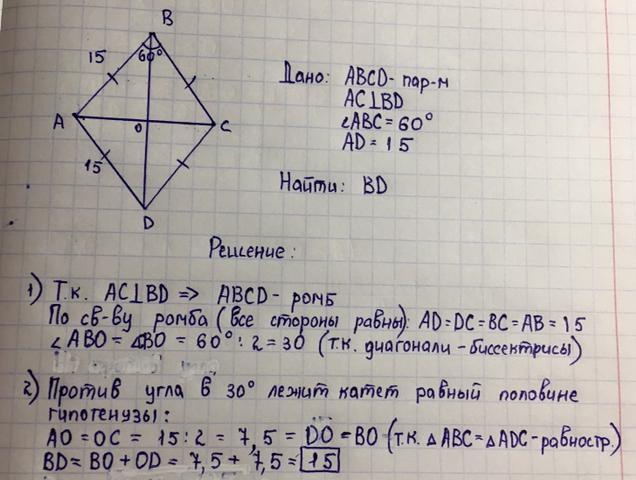 B
15
60°
A
O
C
15
D
Дано: ABCD - пар-м
AC⊥BD
∠ABC = 60°
AD = 15
Найти: BD
Решение:
1) Т.к. AC⊥BD => ABCD - ромб
По св-ву ромба (все стороны равны): AD=DC=BC=AB=15
∠ABO = ∠BO = 60° : 2 = 30 (т.к. диагонали - биссектрисы)
2) Против угла в 30° лежит катет равный половине
гипотенузы:
AO = OC = 15 : 2 = 7,5 = DO = BO (т.к. △ABC = △ADC - равностр.)
BD = BO + OD = 7,5 + 7,5 = 15